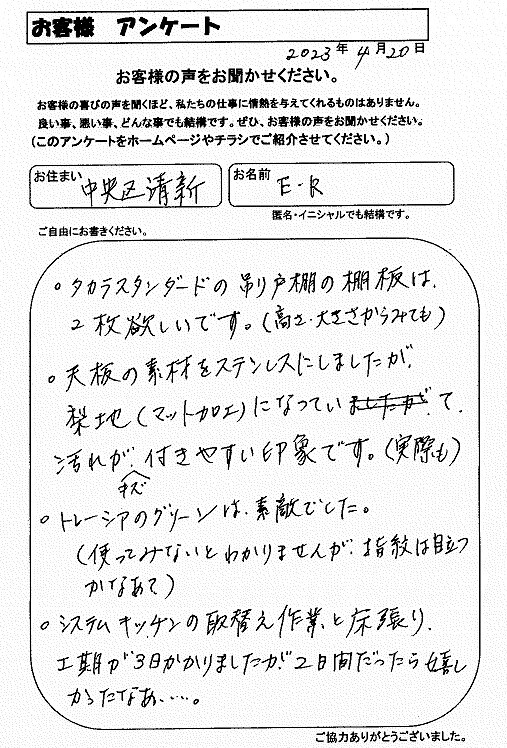 お客様 アンケート
2023年4月20日
お客様の声をお聞かせください。
お客様の喜びの声を聞くほど、私たちの仕事に情熱を与えてくれるものはありません。
良い事、悪い事、どんな事でも結構です。ぜひ、お客様の声をお聞かせください。
(このアンケートをホームページやチラシでご紹介させてください。)
お住まい 中央区清新
お名前 E・K
匿名・イニシャルでも結構です。
ご自由にお書きください。
。タカラスタンダードの吊り戸棚の棚板は、
2枚欲しいです。(高さ・大きさからみても)
。天板の素材をステンレスにしましたが、
梨地(マット加工)になっていましたが、て、
汚れが、付きやすい印象です。(実際も)
キズ
。トレーシアのグリーンは、素敵でした。
(使ってみないとわかりませんが、指紋は目立つ
かなあて)
。システムキッチンの取替え作業と床張り、
工期が3日かかりましたが、2日間だったら嬉し
かったなあ……。
ご協力ありがとうございました。